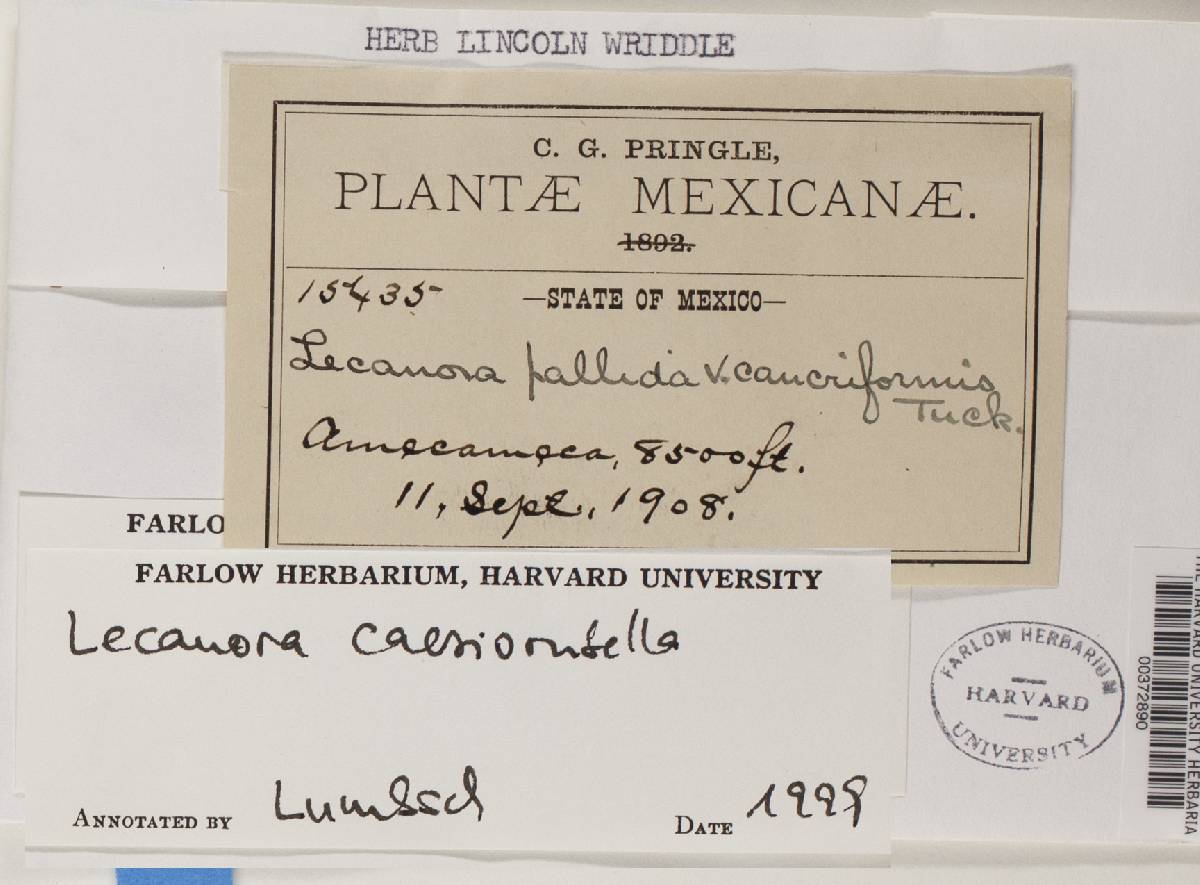 HERB LINCOLN W RIDDLE
C. G. PRINGLE,
PLANTÆ MEXICANÆ.
1892.
15435 —STATE OF MEXICO—
Lecanora pallida v. cancriformis
Tuck.
Amecameca, 8500 ft.
11, Sept, 1908.
FARLO
FARLOW HERBARIUM, HARVARD UNIVERSITY
Lecanora caesiorubella
ANNOTATED BY Lumbsch
DATE 1998
FARLOW HERBARIUM
HARVARD
UNIVERSITY
00372890
HARVARD UNIVERSITY HERBARIA